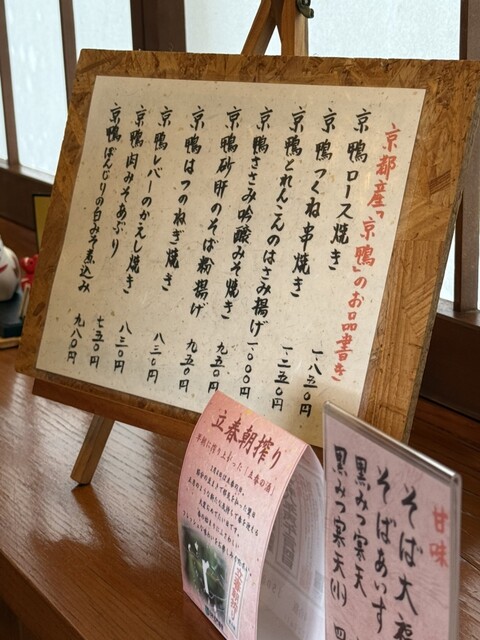 京都産「京鴨」のお品書き
京鴨ロース焼き 一、八五〇円
京鴨つくね串焼き 一、二五〇円
京鴨とれんこんのはさみ揚げ 一〇〇〇円
京鴨ささみ吟醸みそ焼き 九五〇円
京鴨砂肝のそば粉揚げ 九五〇円
京鴨はつのねぎ焼き 八三〇円
京鴨レバーのかえし焼き 八三〇円
京鴨肉みそあぶり 七五〇円
京鴨ぼんじりの白みそ煮込み 九八〇円
立春朝搾り
早朝に搾り上がった「立春の酒」
甘味
そば大福
そばあいす
黒みつ寒天
黒みつ寒天(小) 四